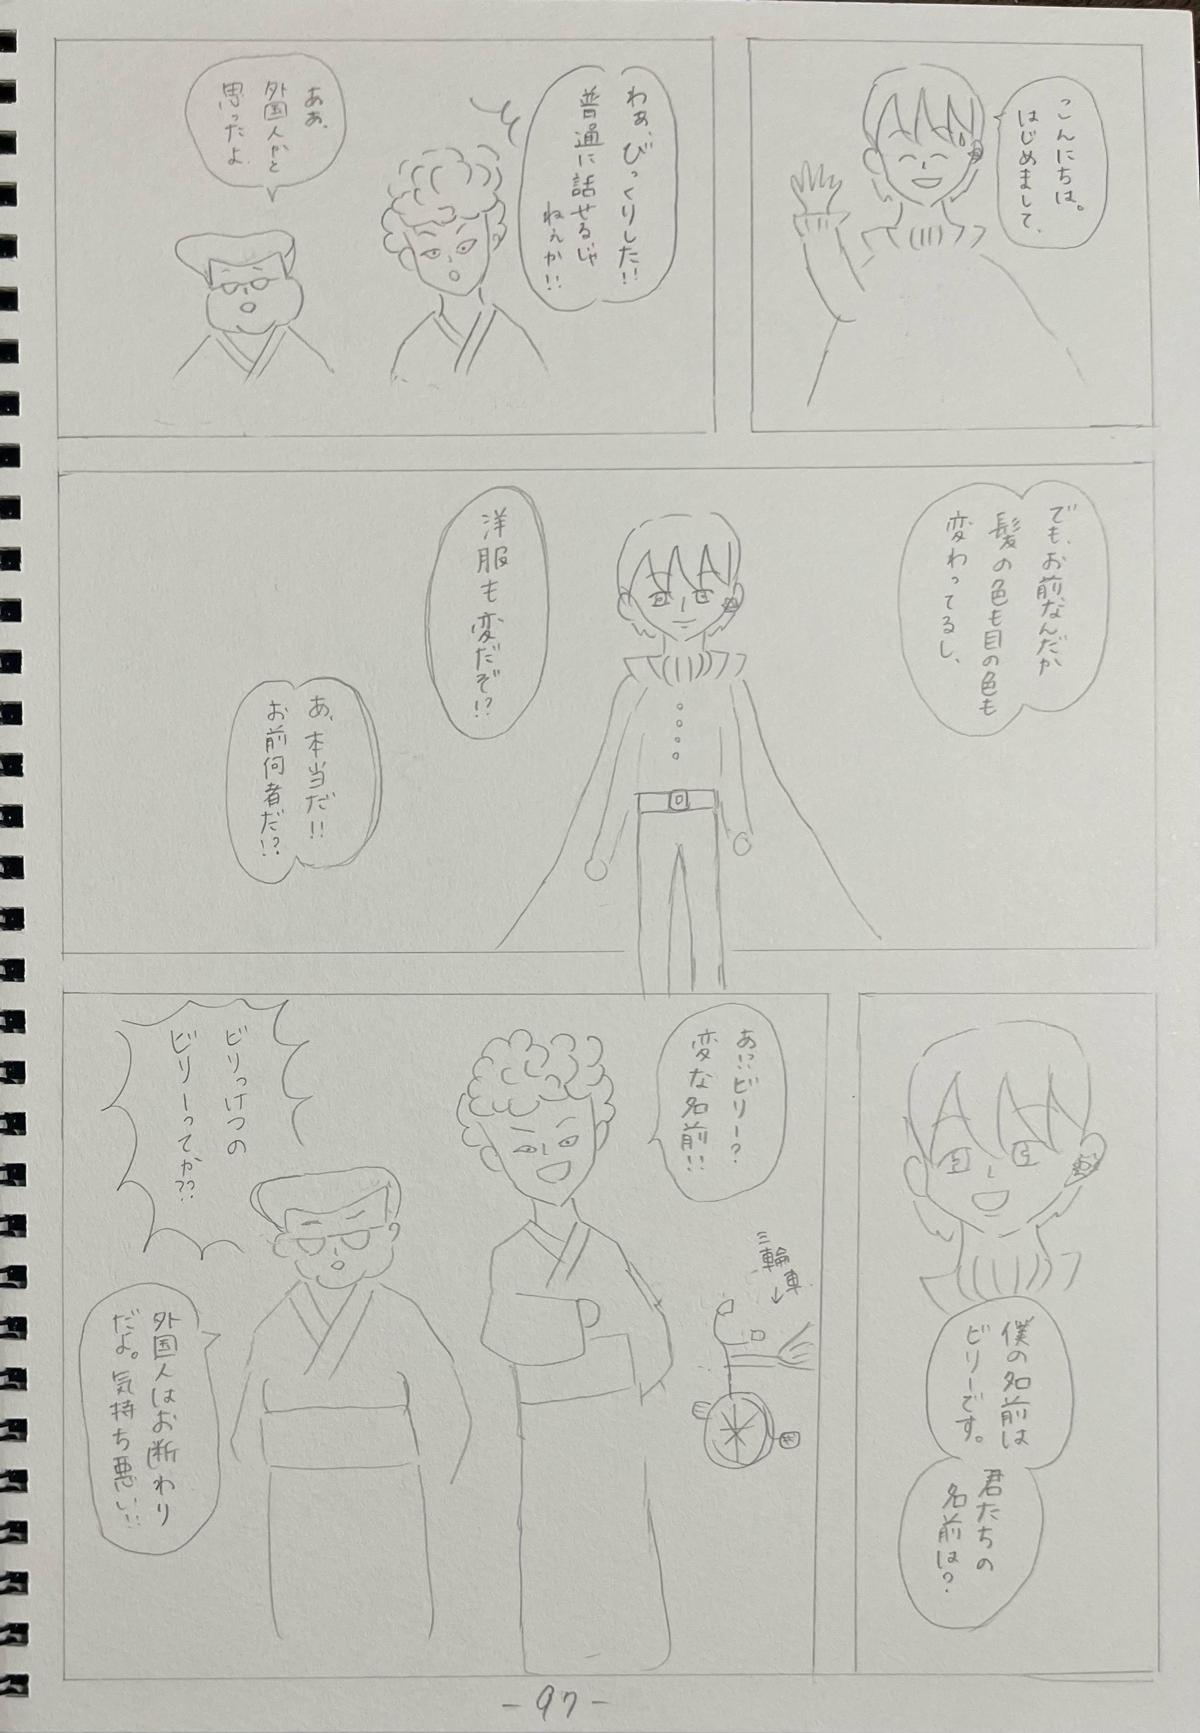 こんにちは。
はじめまして、
わぁ、びっくりした!!
普通に話せるじゃ
ねぇか!!
ああ、
外国人かと
思ったよ
でも、お前なんだか
髪の色も目の色も
変わってるし、
洋服も変だぞ!?
あ、本当だ!!
お前何者だ!?
僕の名前は
ビリーです。
君たちの
名前は?
あ!?ビリー?
変な名前!!
三輪車
ビリっけつの
ビリーってか??
外国人はお断わり
だよ。気持ち悪い!!
-97-